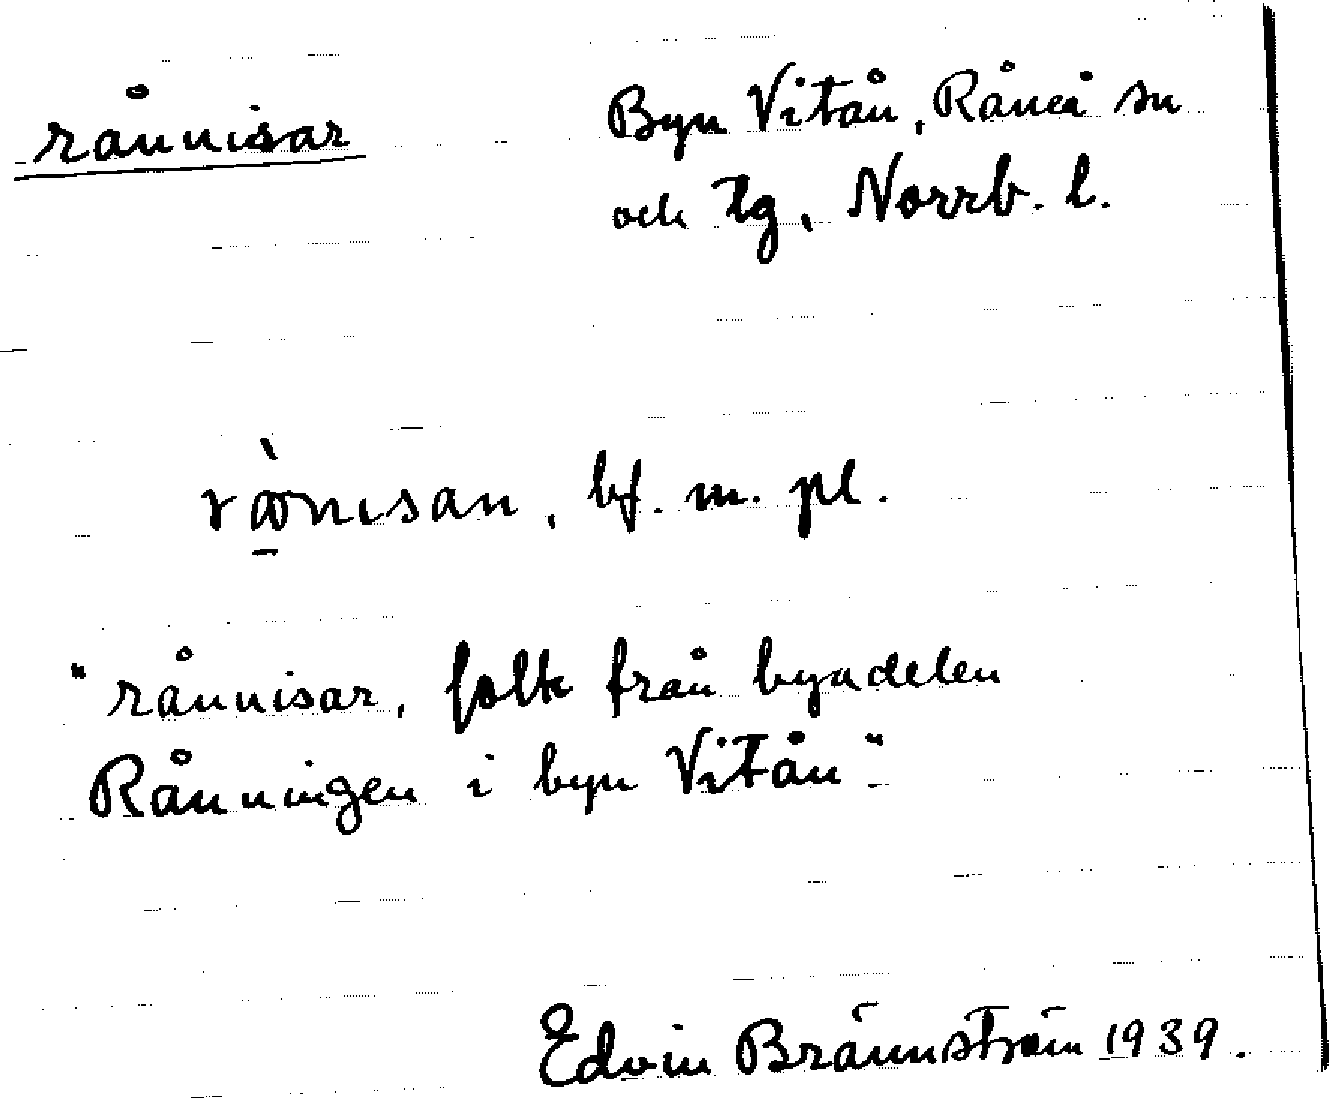 rånnisar
Byn Vitån, Råneå sn
och tg, Norrb. l.
bf. m. pl.
"rånnisar, folk från byadelen
Rånningen i byn Vitån"
Edvin Brännström 1939.